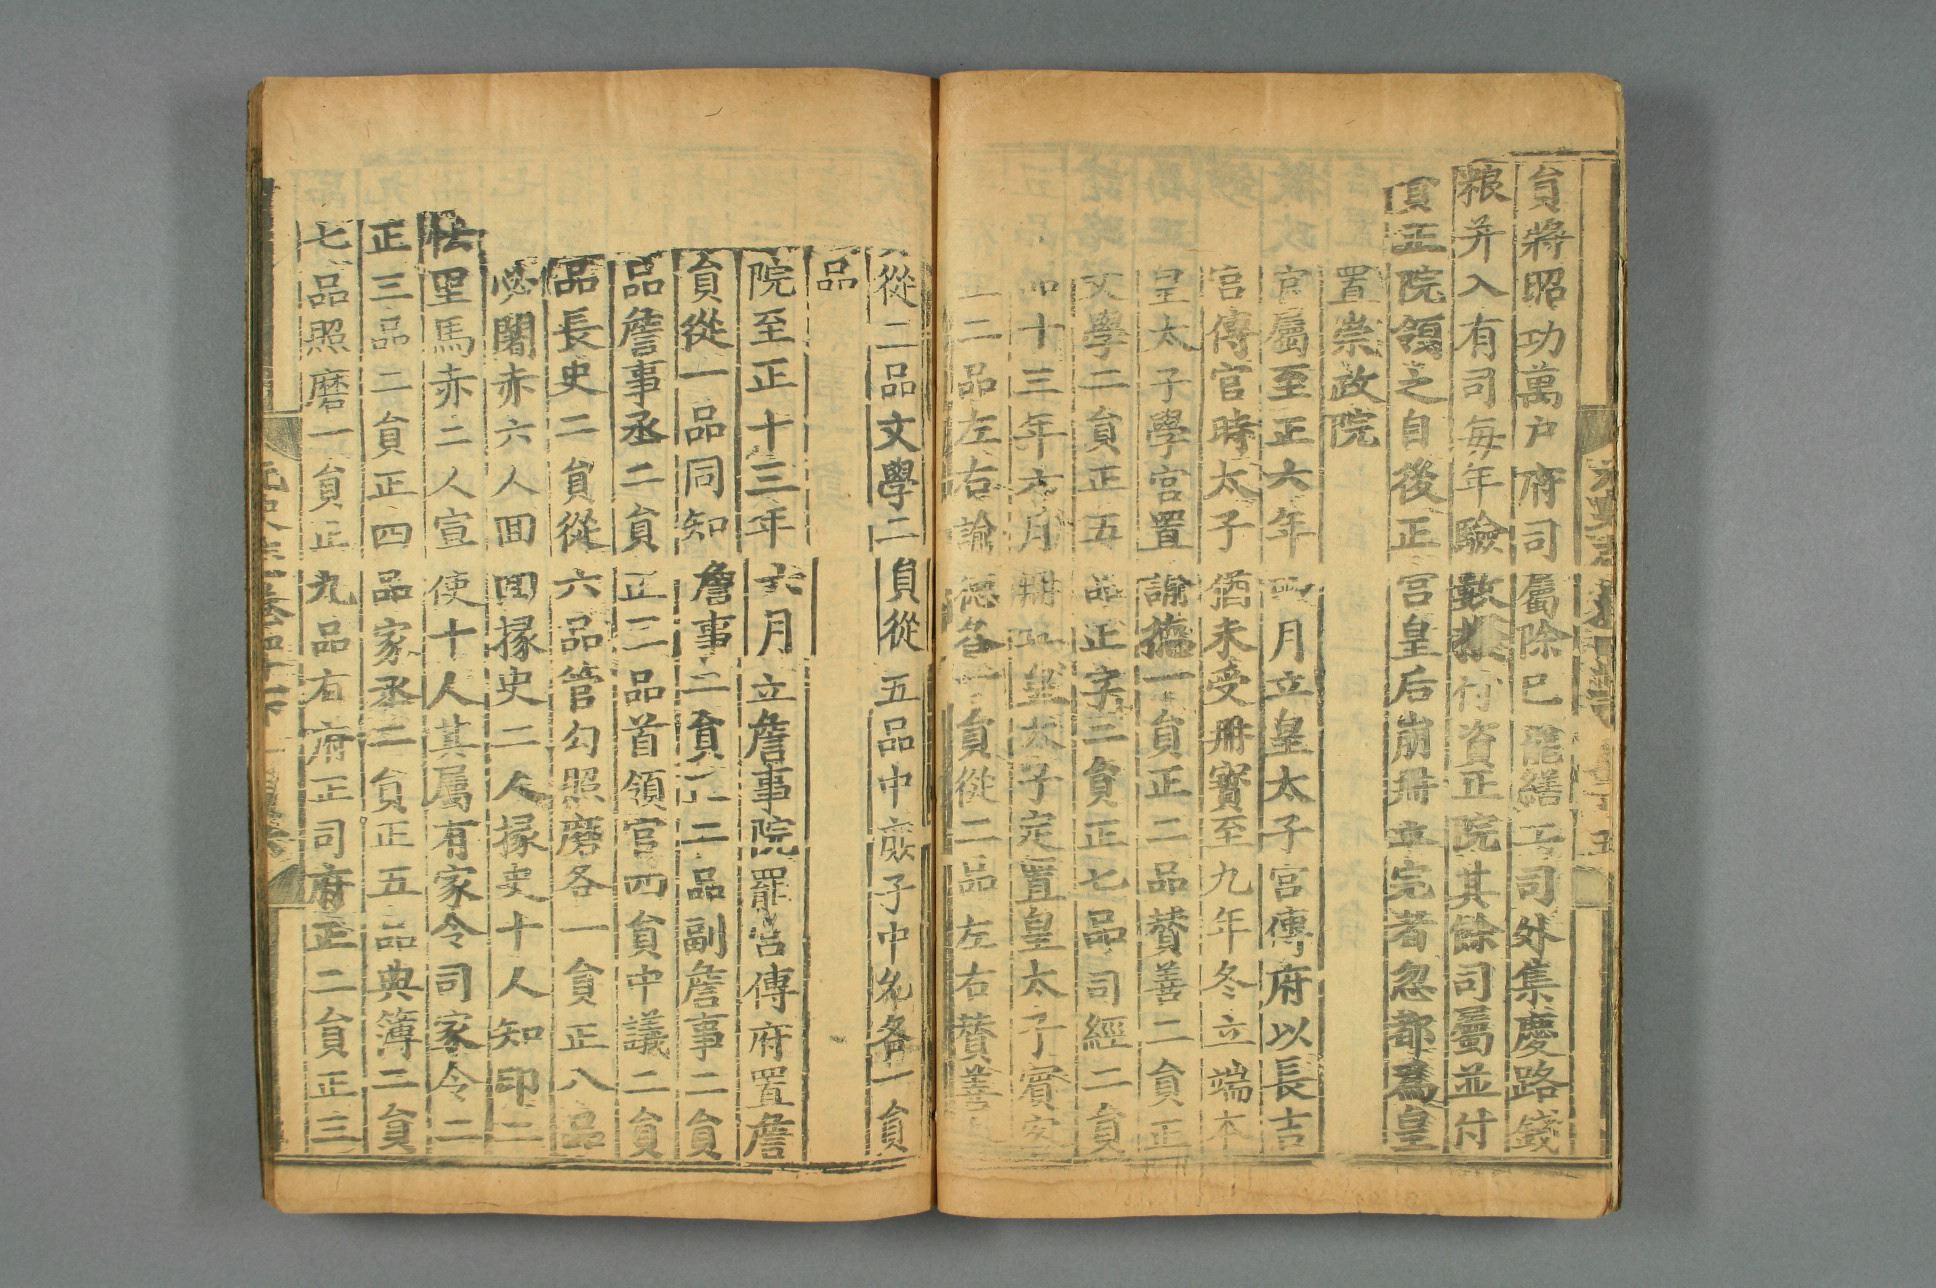 貟將昭功萬户府司屬除已罷繕工司外集慶路錢
粮并入有司每年驗數撥付資正院其餘司屬並付
資正院領之自後正宮皇后崩冊立完者忽都爲皇
置崇政院
官屬至正六年四月立皇太子宮傅府以長吉
宮傅官時太子猶未受冊寶至九年冬立端本
皇太子學宮置諭德一貟正二品贊善二貟正
文學二貟正五品正字二貟正七品司經二貟
品十三年六月冊立皇太子定置皇太子賓客
二品左右諭德各一貟從二品左右贊善各
從二品文學二貟從五品中庶子中允各一貟
品
院至正十三年六月立詹事院罷宮傅府置詹
貟從一品同知詹事二貟正二品副詹事二貟
品詹事丞二貟正三品首領官四貟中議二貟
品長史二貟從六品管勾照磨各一貟正八品
必闍赤六人回回掾史二人掾史十人知印二
怯里馬赤二人宣使十人其屬有家令司家令二
正三品二貟正四品家丞二貟正五品典簿二貟
七品照磨一貟正九品有府正司府正二貟正三